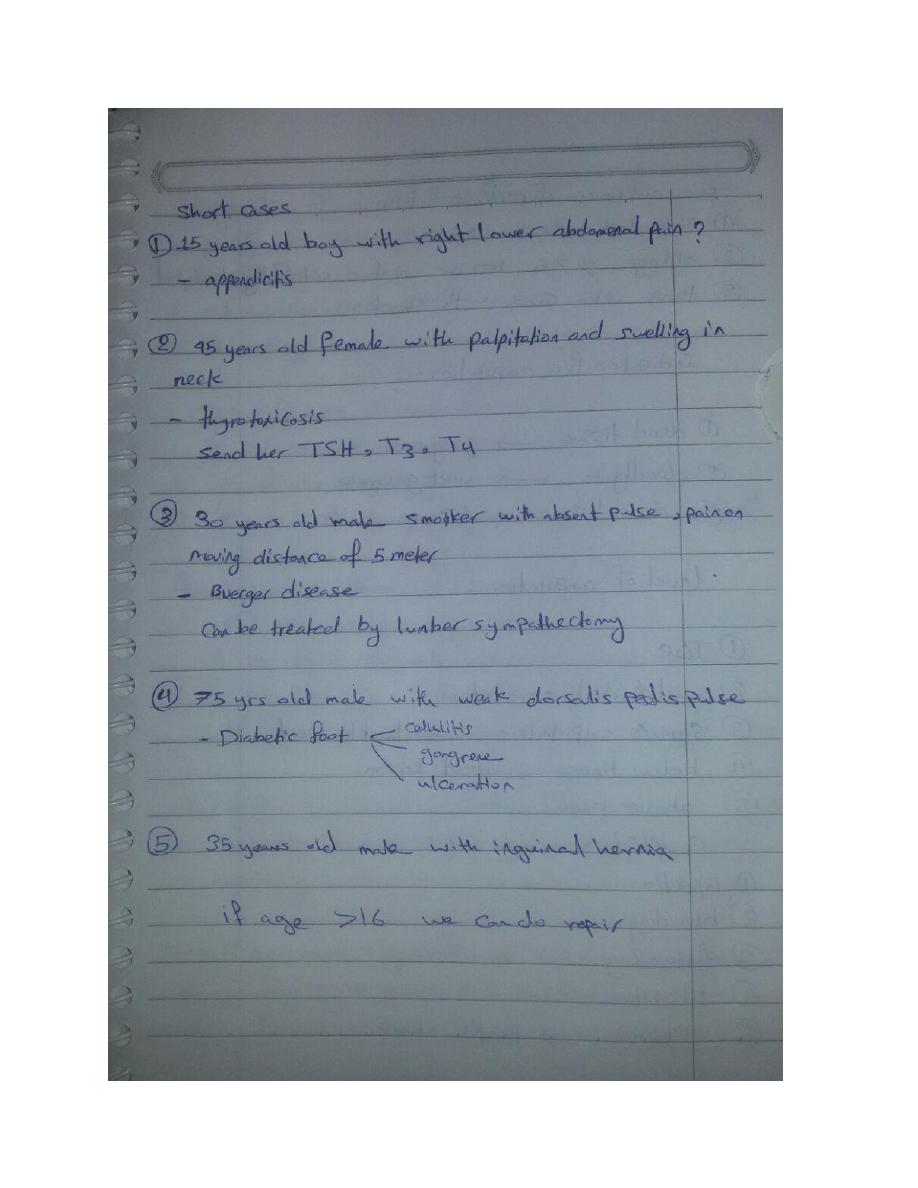 Short cases
① 15 years old boy with right lower abdomenal pain ?
- appendicitis
② 45 years old female with palpitation and swelling in
neck
- thyrotoxicosis
send her TSH, T3, T4
③ 30 years old male smoker with absent pulse, pain on
moving distance of 5 meter
- Buerger disease
can be treated by lumber sympathectomy
④ 75 yrs old male with weak dorsalis pedis pulse
- Diabetic foot
celulitis
gangrene
ulceration
⑤ 35 years old male with inguinal hernia
if age >16 we can do repair